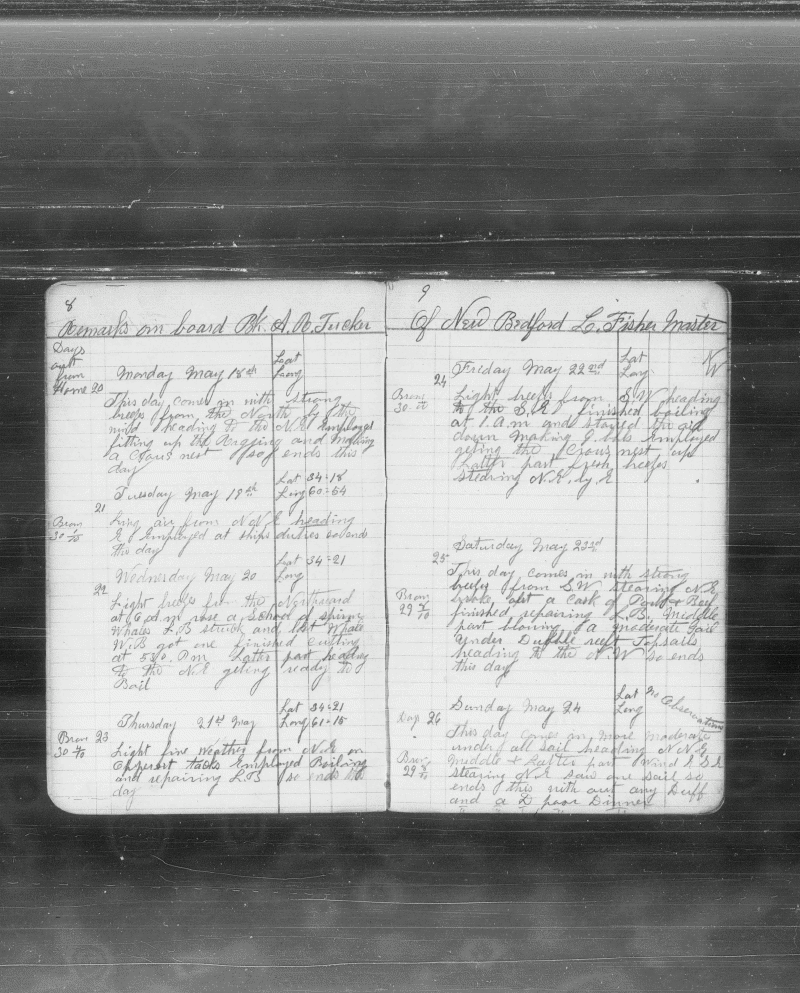 8
Remarks on board Bk. A. R. Tucker
Days
out
from
Home 20
Monday May 18th
Lat
Long
This day comes in with strong
breefs from the North by the
wind heading to the N.E. Employed
fitting up the Rigging and Making
a Crous nest so ends this
day
Tuesday May 19th
Lat 34=18
Long 60=54
21
Brom
30 1/10
air from N.N.E heading
E Employed at ships duties so ends
the day
Wednesday May 20
Lat 34=21
Long
22
Light breefs from the Northward
at 6 a.m. rose a School of spirm
Whales L.B struck and lost Whale
W.B got one finished Cutting
at 5:30. P.m Latter part heading
to the N.E geting ready to
Boil
Thursday 21st May
Lat 34=21
Long 61=15
Brom 23
Light fine Weather from N.E. on
Oppersit tacks Employed Boiling
and repairing L.B so ends the
day
9
Of New Bedford L. Fisher Master
24
Friday May 22nd
Lat N
Long W
Brom
Light breefs from S.W heading
to the S.E finished boiling
at 1 A.m and stowed the oil
down Making bbls Employed
geting the Crous nest up
Latter part fresh breefs
stearing N.E. by E
Saturday May 23rd
25
This day comes in with strong
breefs from S.W stearing N.E
broke out a Cask of Pork & Beef
finished repairing L.B. Middle
part blowing a moderate Gale
Under Dubble reeft Topsails
heading to the N.W so ends
this day
Sunday May 24
Lat No Observation
Long
Days 26
This day comes in more moderate
under all sail heading N.N.E
Middle & Latter part Wind E.S.E
stearing N.E saw one sail so
ends this with out any Duff
and a D poor Dinner